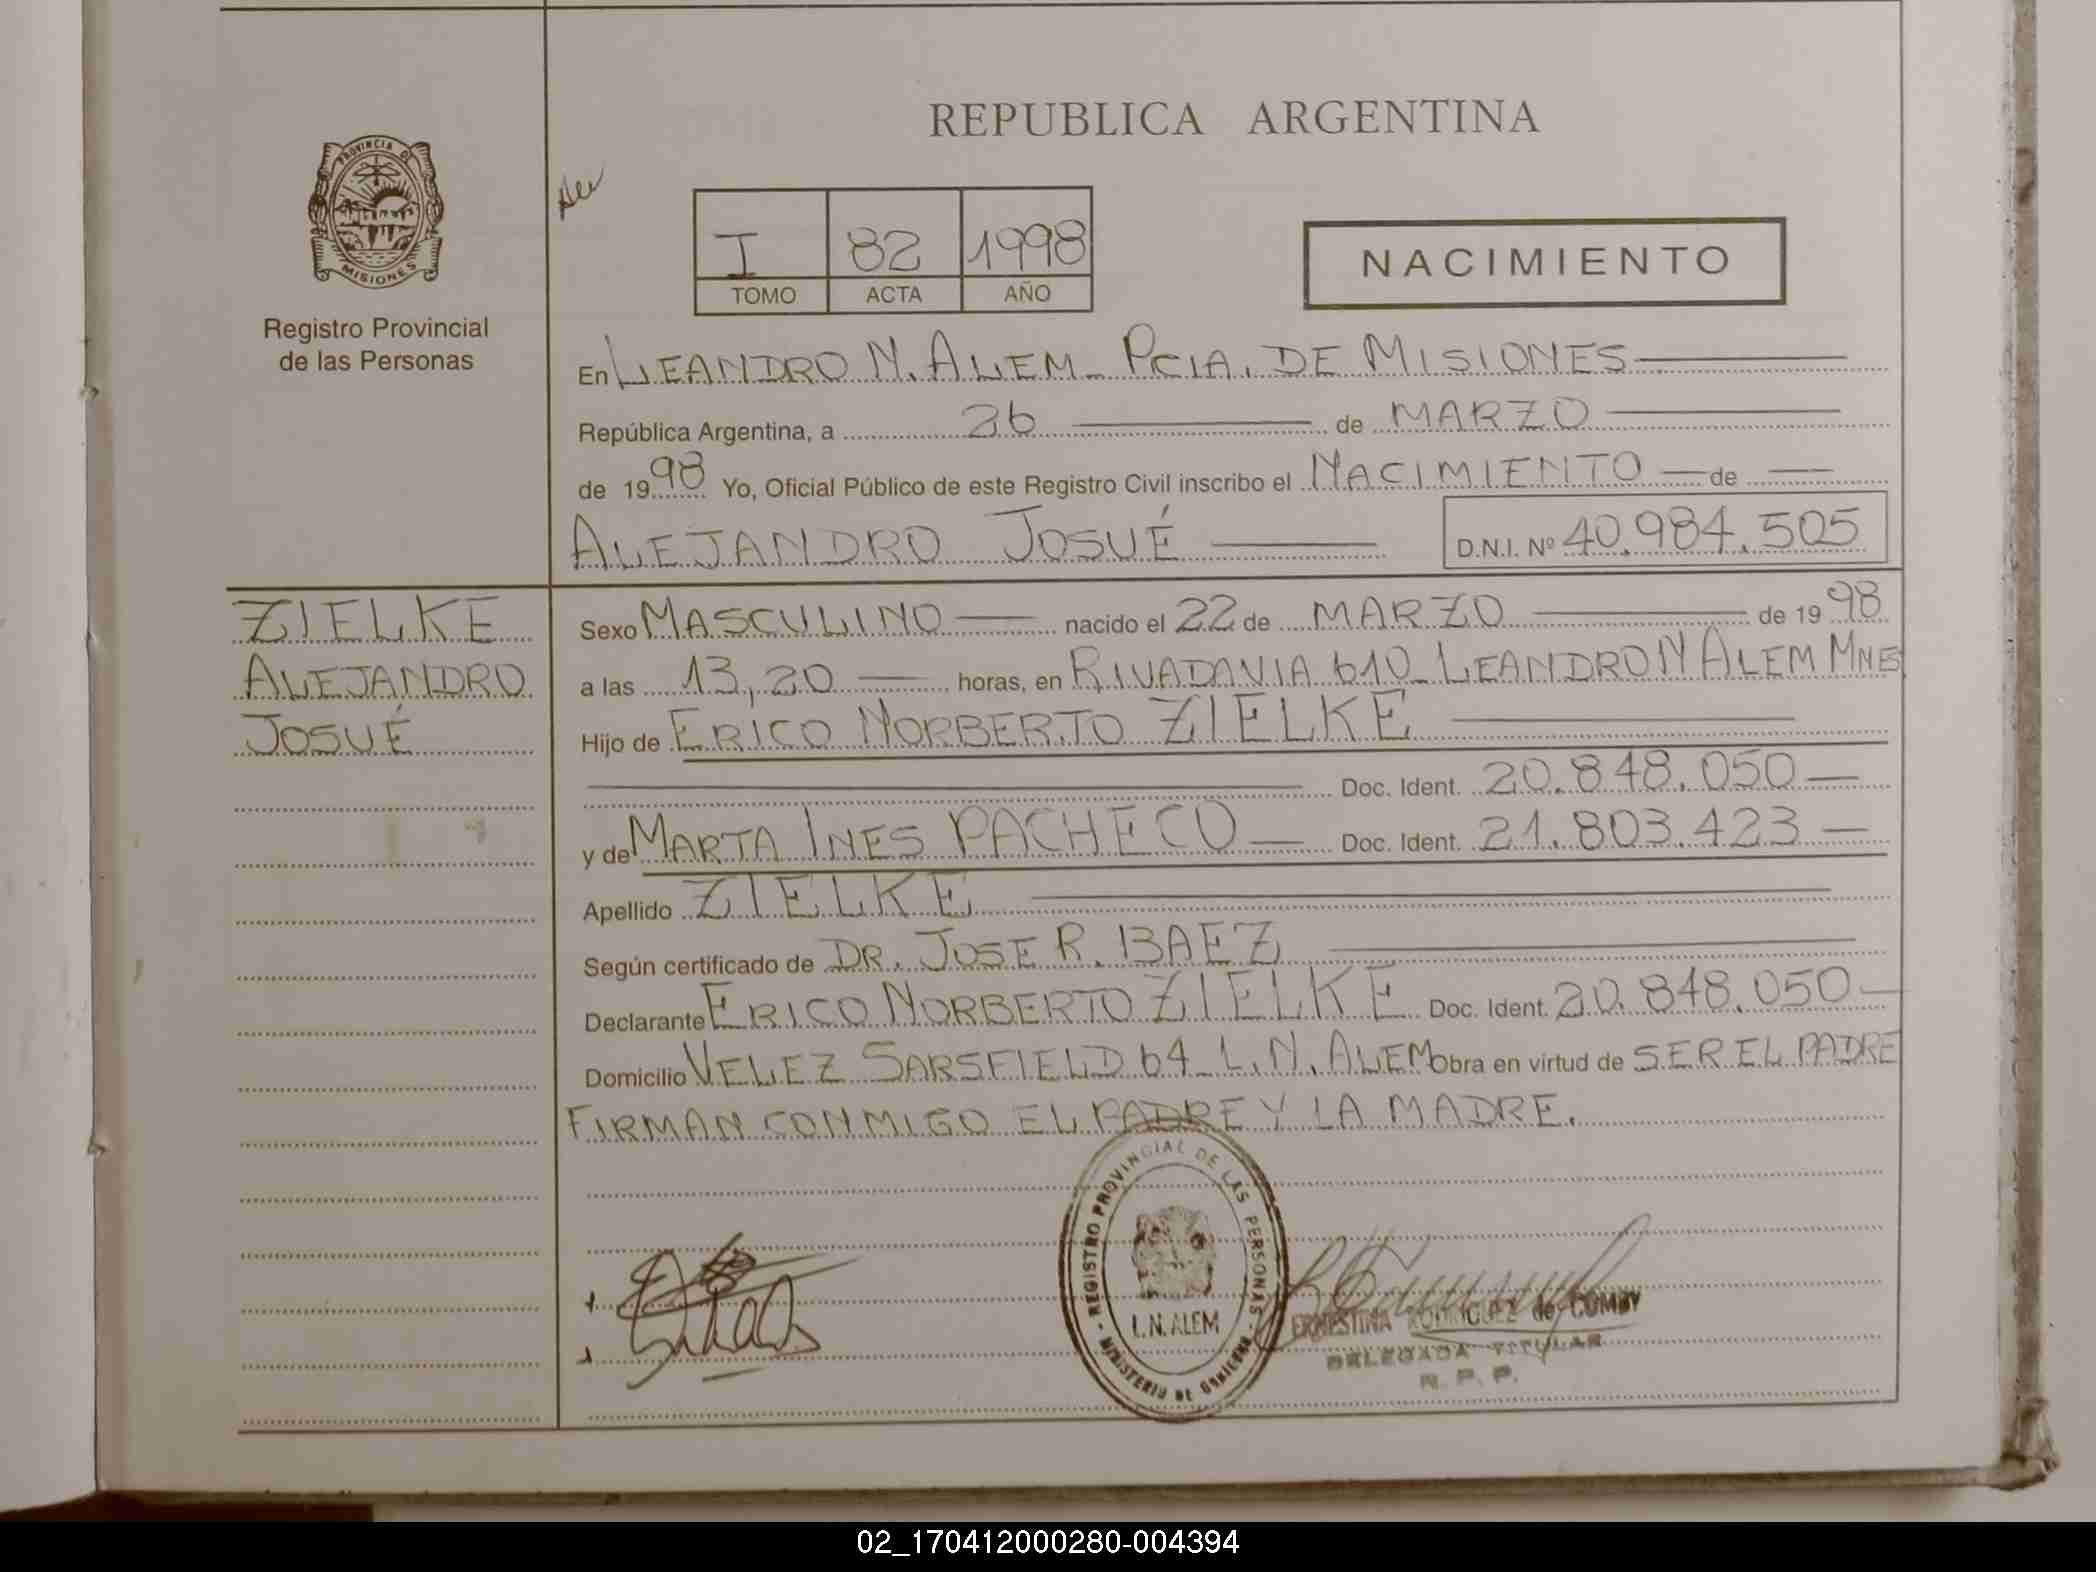 REPUBLICA ARGENTINA
PROVINCIA DE
MISIONES
Registro Provincial
de las Personas
I 82 1998
TOMO ACTA AÑO
NACIMIENTO
En LEANDRO N. ALEM - PCIA. DE MISIONES
República Argentina, a 26 de MARZO
de 1998 Yo, Oficial Público de este Registro Civil inscribo el NACIMIENTO de
ALEJANDRO JOSUÉ D.N.I. Nº 40.984.505
ZIELKE
ALEJANDRO
JOSUÉ
Sexo MASCULINO nacido el 22 de MARZO de 1998
a las 13,20 horas, en RIVADAVIA 610 - LEANDRO N ALEM MNES
Hijo de ERICO NORBERTO ZIELKE
Doc. Ident. 20.848.050
y de MARTA INES PACHECO Doc. Ident. 21.803.423
Apellido ZIELKE
Según certificado de DR. JOSE R. BAEZ
Declarante ERICO NORBERTO ZIELKE Doc. Ident. 20.848.050
Domicilio VELEZ SARSFIELD 64 - L.N. ALEM Obra en virtud de SER EL PADRE
FIRMAN CONMIGO EL PADRE Y LA MADRE.
REGISTRO PROVINCIAL DE LAS PERSONAS
L.N. ALEM
MINISTERIO DE GOBIERNO
ERNESTINA RODRIGUEZ de
DELEGADA TITULAR
R. P. P.
02_170412000280-004394